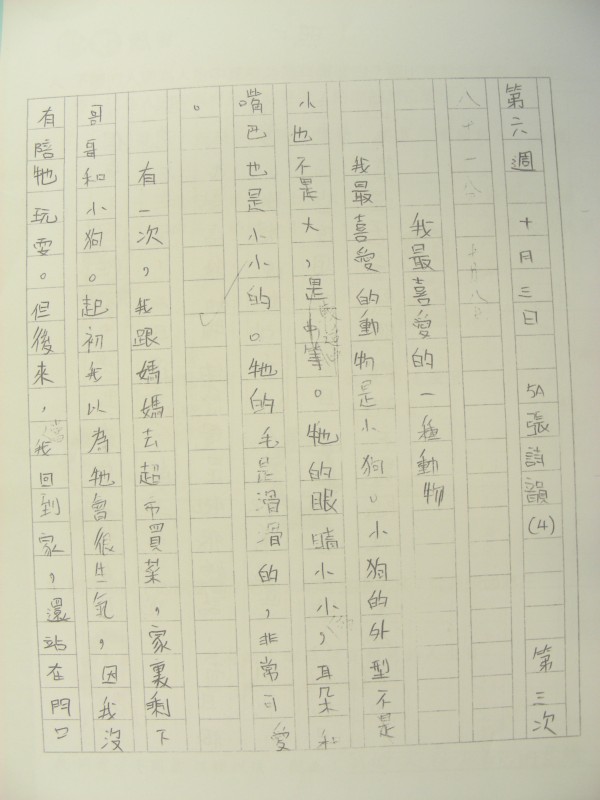 第六週 十月三日 5A張詩韻(4) 第三次
我最喜愛的一種動物
我最喜愛的動物是小狗。小狗的外型不是
小也不是大，是中等。牠的眼睛小小，耳朵和
嘴巴也是小小的。牠的毛是滑滑的，非常可愛
。
有一次，我跟媽媽去超市買菜，家裏剩下
哥哥和小狗。起初我以為牠會很生氣，因我沒
有陪牠玩耍。但後來，我回到家，還站在門口